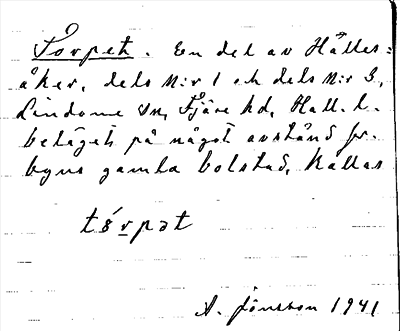 Torpet. En del av Hälles-
åker, dels N:r 1 och dels N:r 3,
Lindome sn, Fjäre hd, Hall. l.
beläget på något avstånd fr.
byns gamla bolstad, kallas
tórpət
A. Jönsson 1941